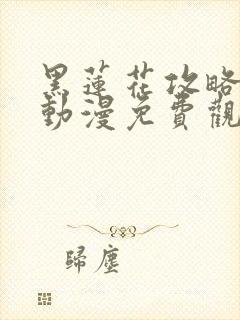 黑蓮花攻略
動漫免費觀
歸塵